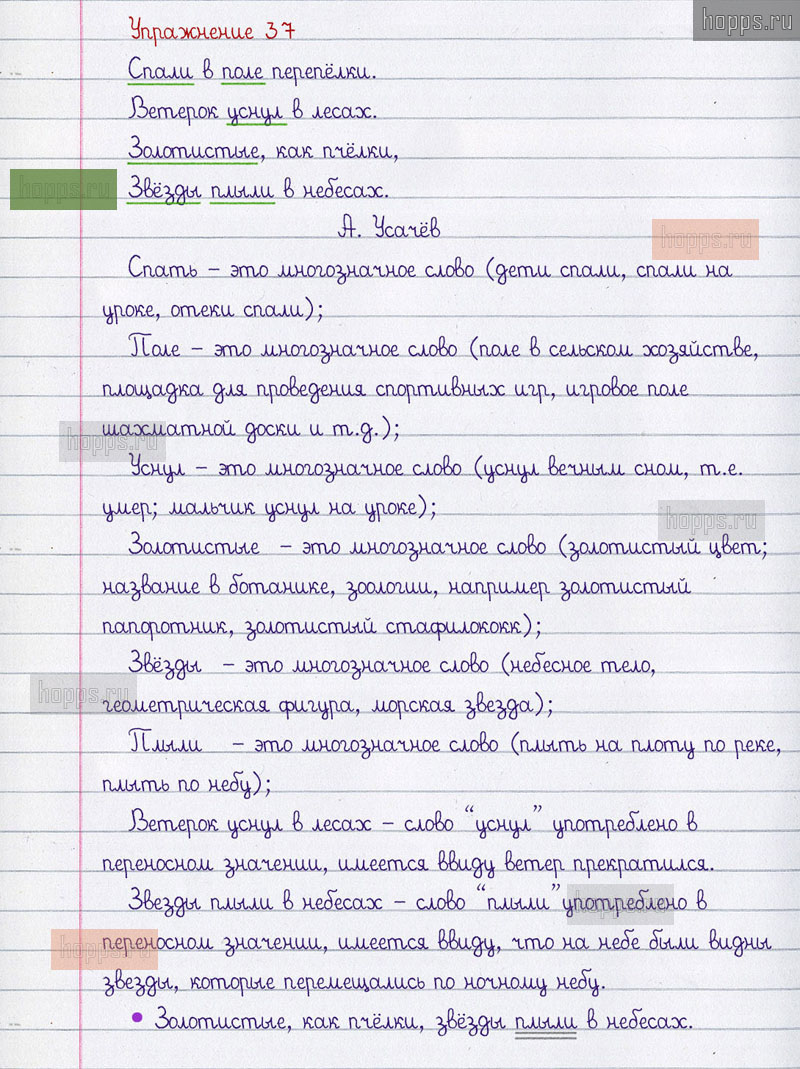 hopps.ru
Упражнение 37
Спали в поле перепёлки.
Ветерок уснул в лесах.
Золотистые, как пчёлки,
hopps.ru
Звёзды плыли в небесах.
А. Усачёв
hopps.ru
Спать – это многозначное слово (дети спали, спали на
уроке, отеки спали);
Поле – это многозначное слово (поле в сельском хозяйстве,
площадка для проведения спортивных игр, игровое поле
шахматной доски и т.д.);
hopps.ru
Уснул – это многозначное слово (уснул вечным сном, т.е.
умер; мальчик уснул на уроке);
hopps.ru
Золотистые – это многозначное слово (золотистый цвет;
название в ботанике, зоологии, например золотистый
папоротник, золотистый стафилококк);
Звёзды – это многозначное слово (небесное тело,
hopps.ru
геометрическая фигура, морская звезда);
Плыли – это многозначное слово (плыть на плоту по реке,
плыть по небу);
Ветерок уснул в лесах – слово “уснул” употреблено в
переносном значении, имеется ввиду ветер прекратился.
Звезды плыли в небесах – слово “плыли” употреблено в
hopps.ru
переносном значении, имеется ввиду, что на небе были видны
hopps.ru
звезды, которые перемещались по ночному небу.
• Золотистые, как пчёлки, звёзды плыли в небесах.